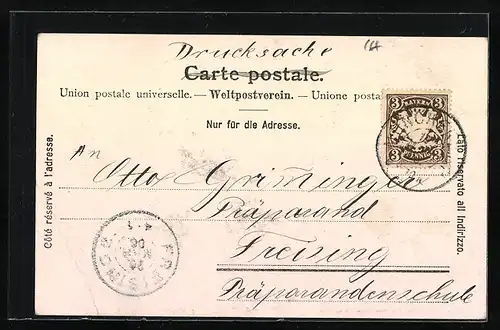 Drucksache
Carte postale.
Union postale universelle. — Weltpostverein. — Unione posta
Nur für die Adresse.
3 BAYERN 3
3 PFENNIG 3
Côté réservé à l'adresse.
Lato riservato all Indirizzo.
An
Otto Griminger
Präparand
Freising
Präparandenschule
FREISING
4-1